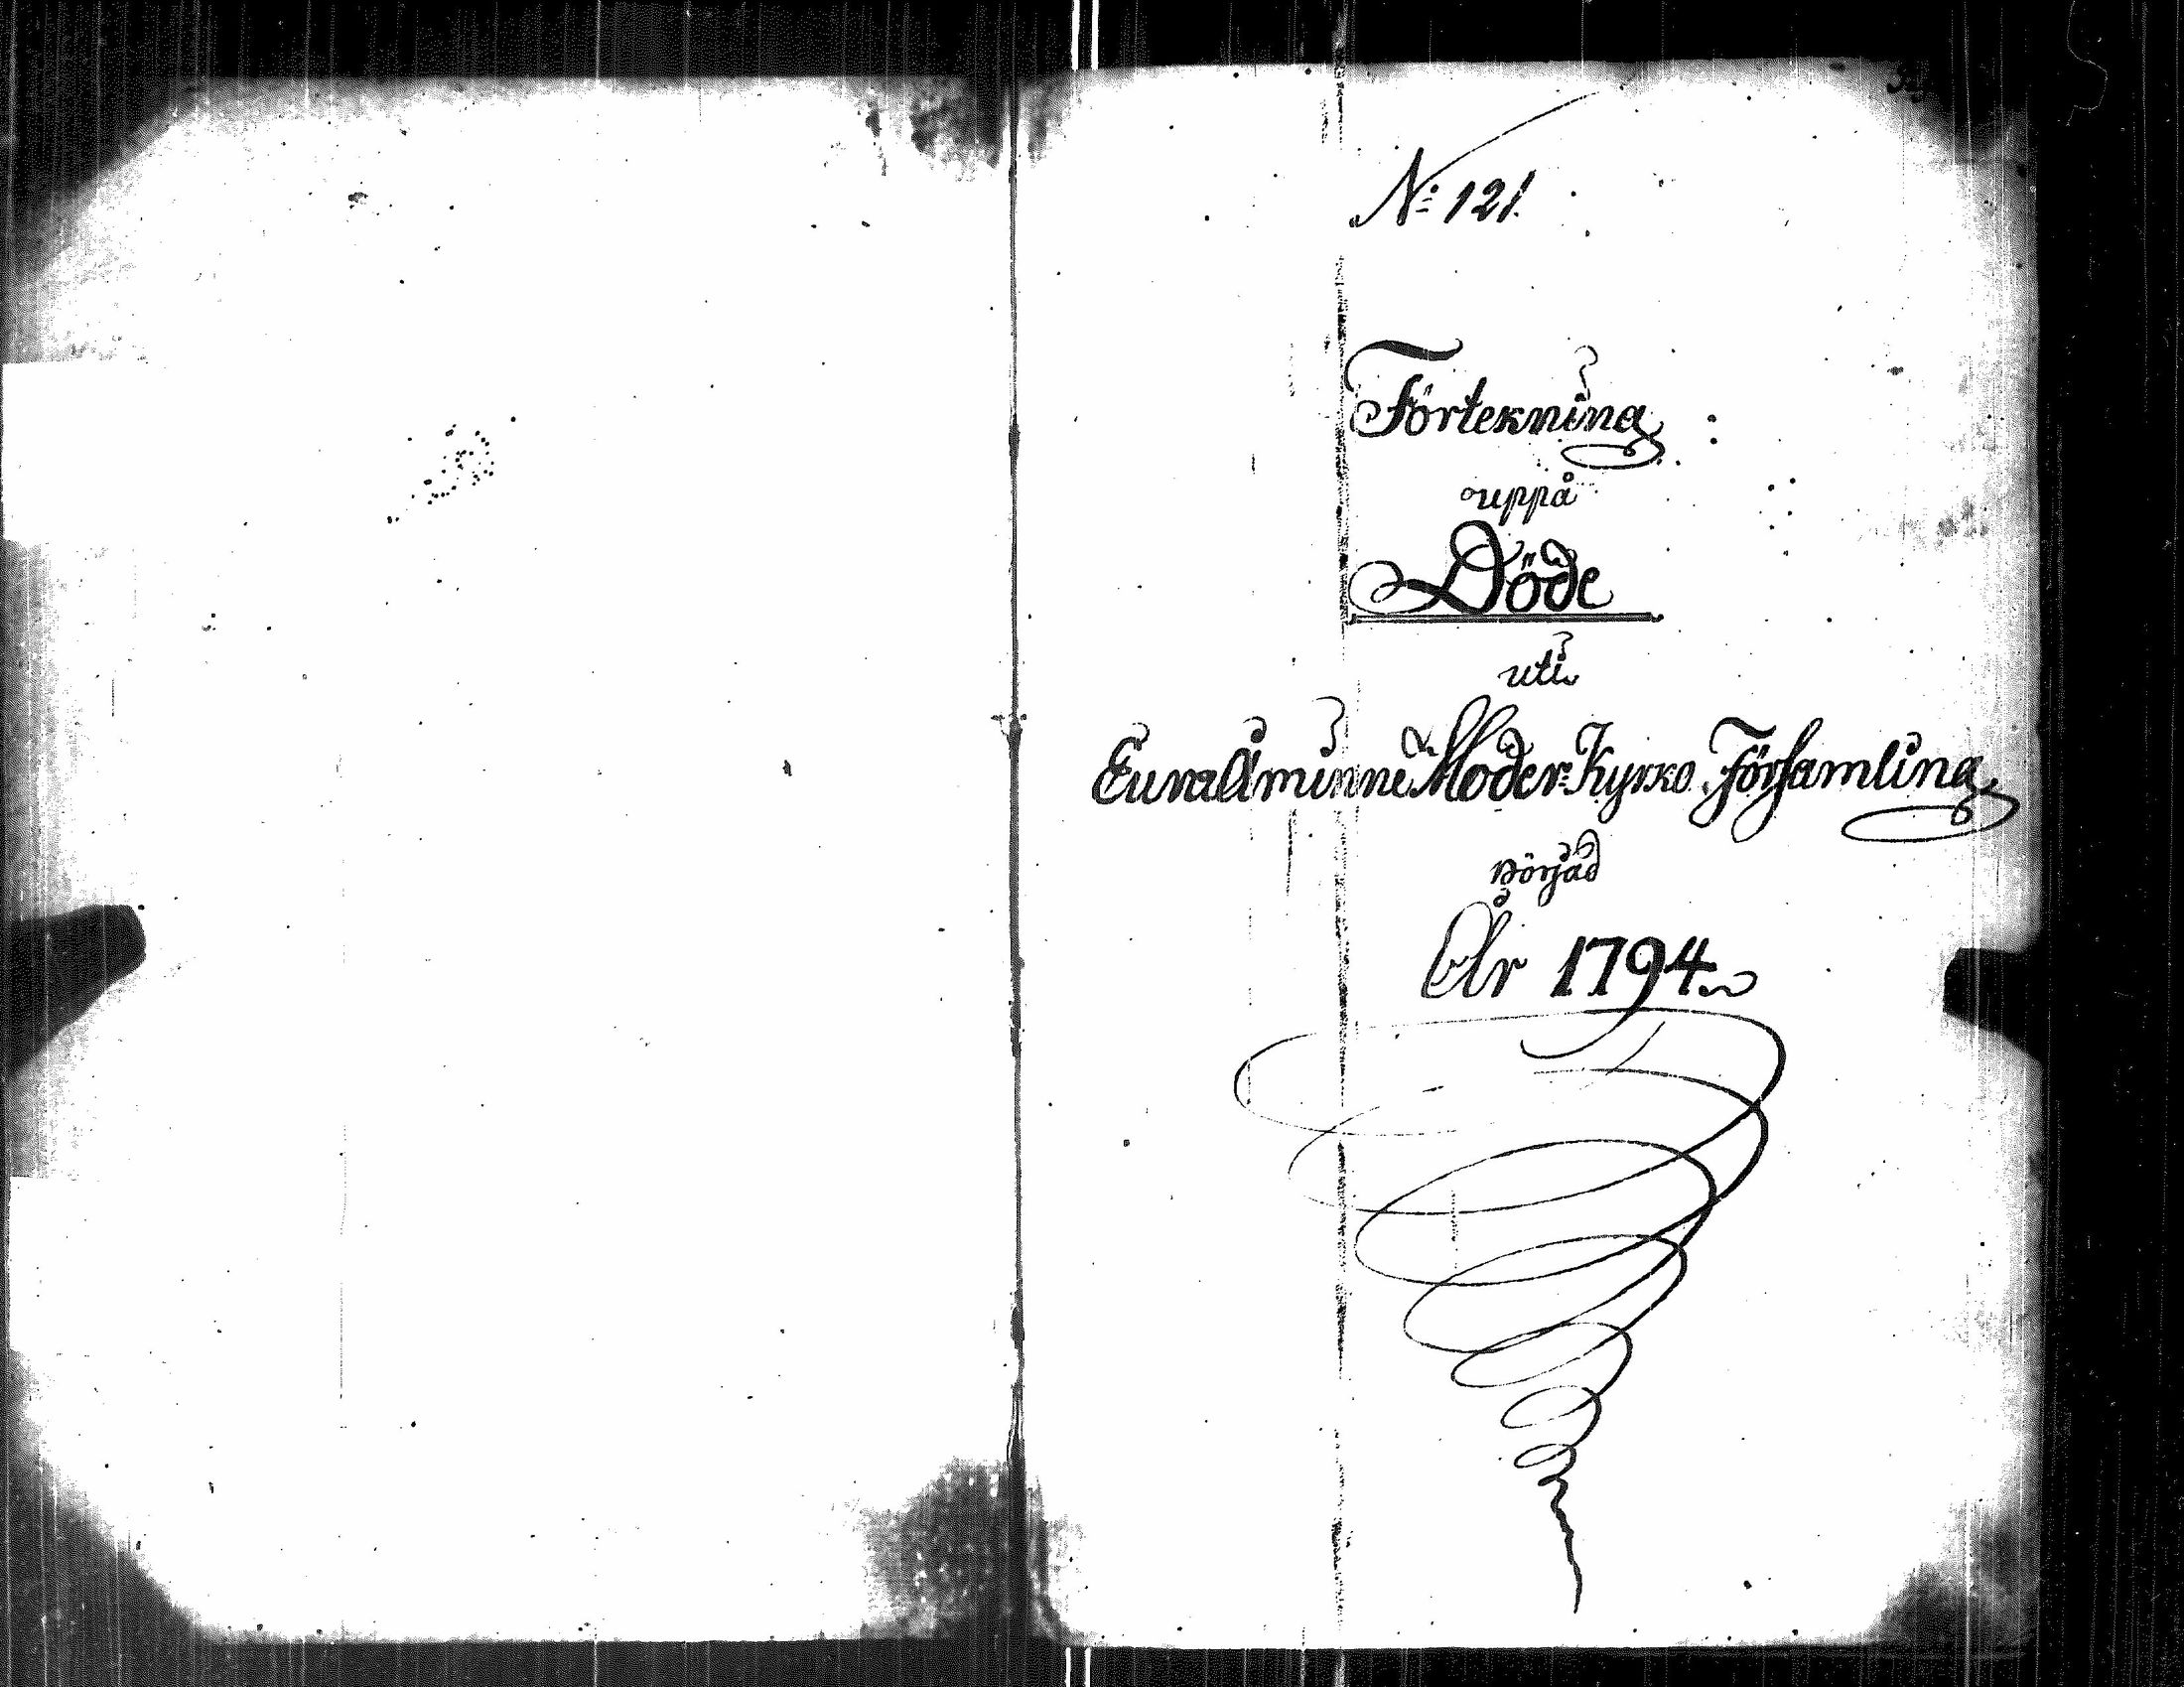 No 121.
Förtekning
uppå
Döde
uti
Euraåminne Moder-Kyrko Församling
Börjad
År 1794.